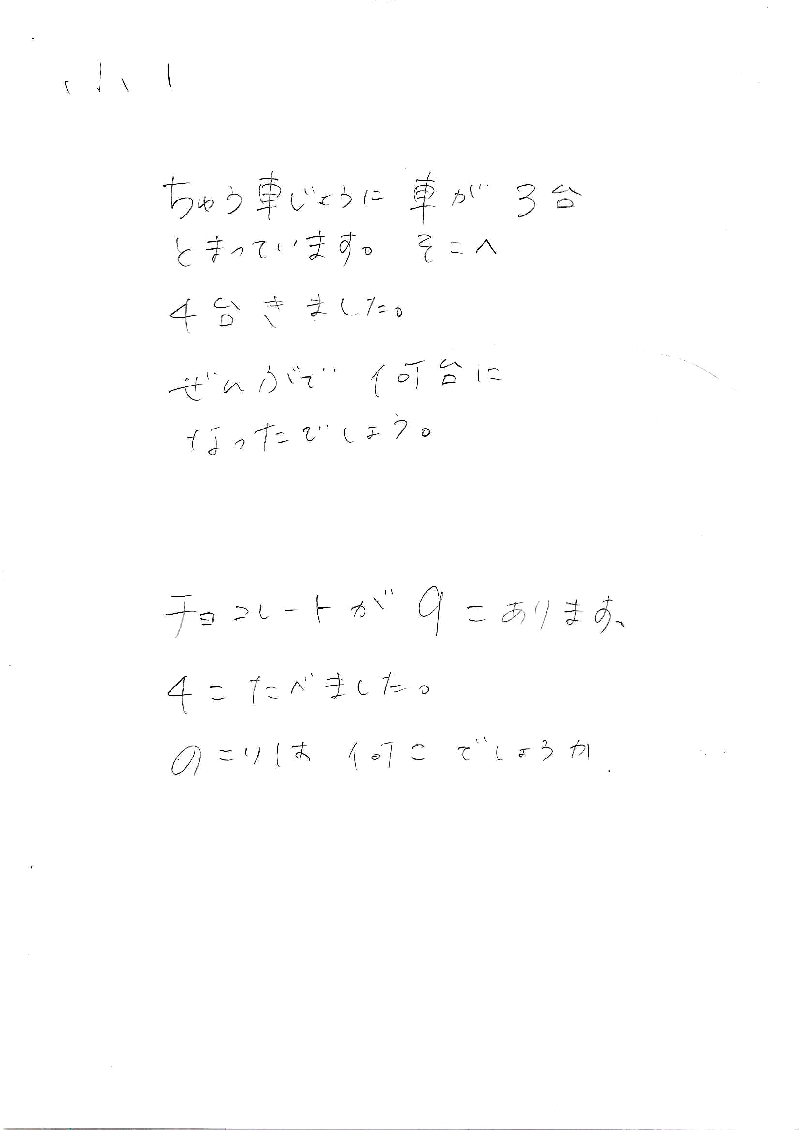 小1
ちゅう車じょうに 車が 3台
とまっています。 そこへ
4台きました。
ぜんがで 何台に
なったでしょう。
チョコレートが 9こあります、
4こたべました。
のこりは 何こでしょうか.